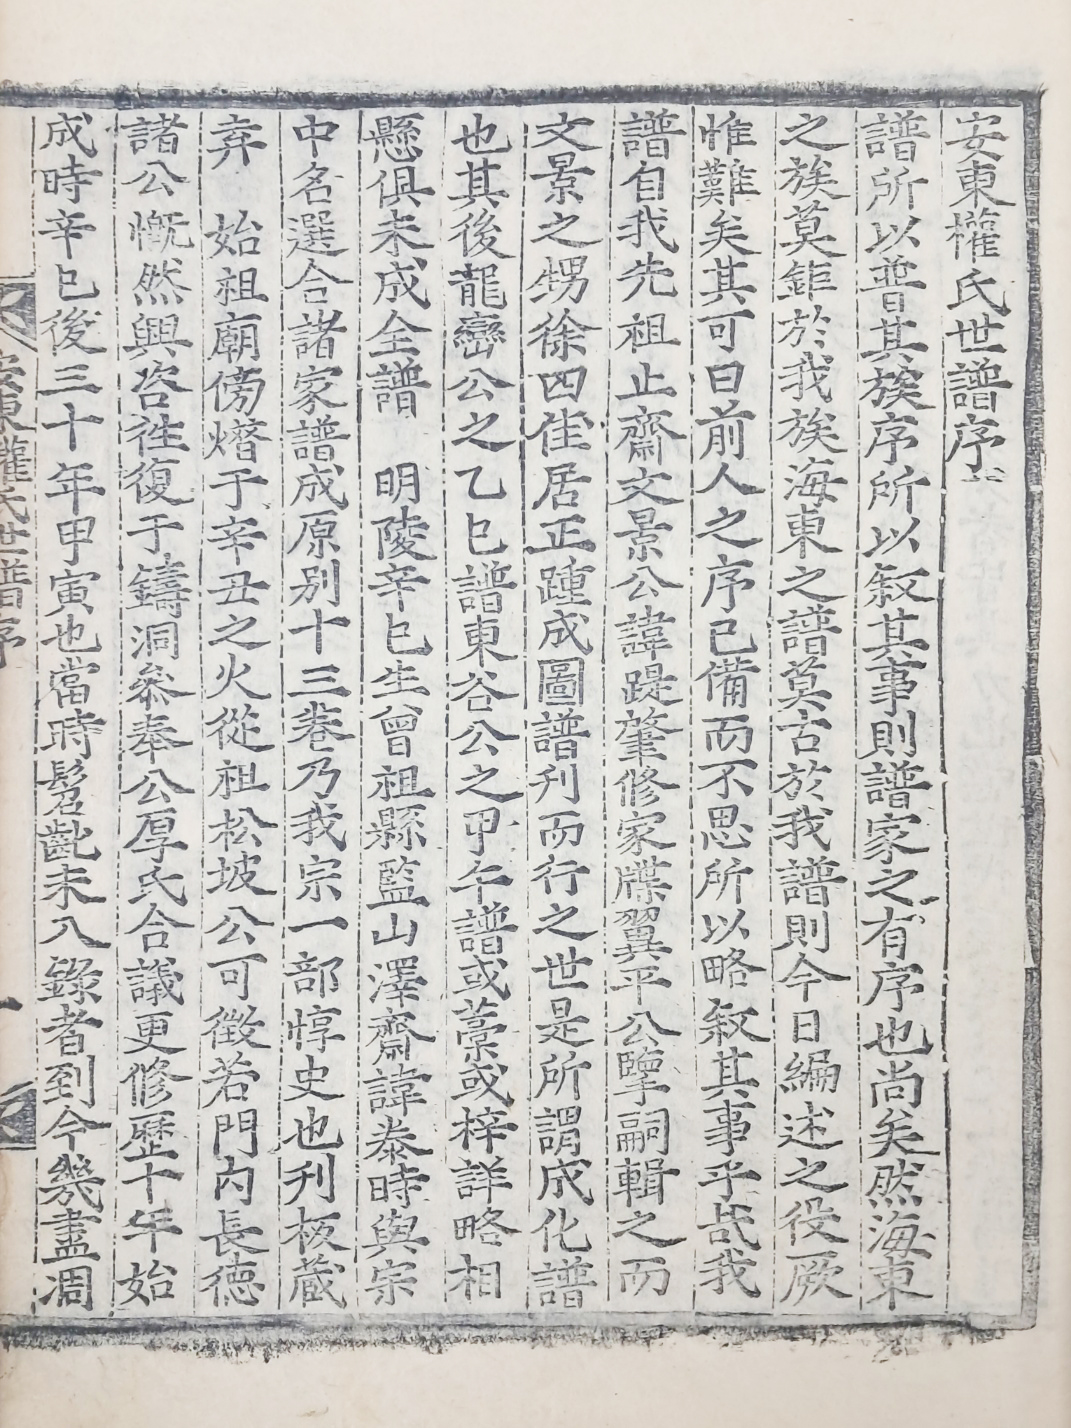 安東權氏世譜序
譜所以普其族序所以叙其事則譜家之有序也尚矣然海東
之族莫鉅於我族海東之譜莫古於我譜則今日編述之役厥
惟難矣其可曰前人之序已備而不思所以略叙其事乎哉我
譜自我先祖止齋文景公諱踶肇修家牒翼平公擥嗣輯之而
文景之甥徐四佳居正踵成圖譜刊而行之世是所謂成化譜
也其後龍巒公之乙巳譜東谷公之甲午譜或藁或梓詳略相
懸俱未成全譜 明陵辛巳生曾祖縣監山澤齋諱泰時與宗
中名選合諸家譜成原別十三巻乃我宗一部惇史也刊板蔵
弆 始祖廟傍熸于辛丑之火從祖松坡公可徵若門內長德
諸公慨然興咨徃復于鑄洞叅奉公厚氏合議更修歷十年始
成時辛巳後三十年甲寅也當時髫齔未入錄者到今幾盡凋
安東權氏世譜序